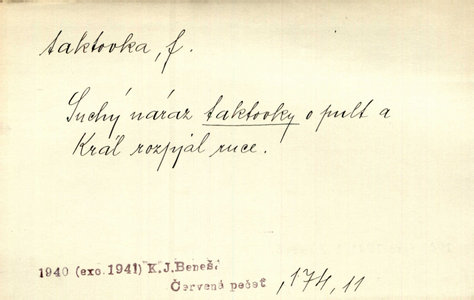 taktovka, f.
Suchý náraz taktovky o pult a
Král rozpjal ruce.
1940 (exc. 1941) K.J.Beneš.
Červená pečeť ,174, 11